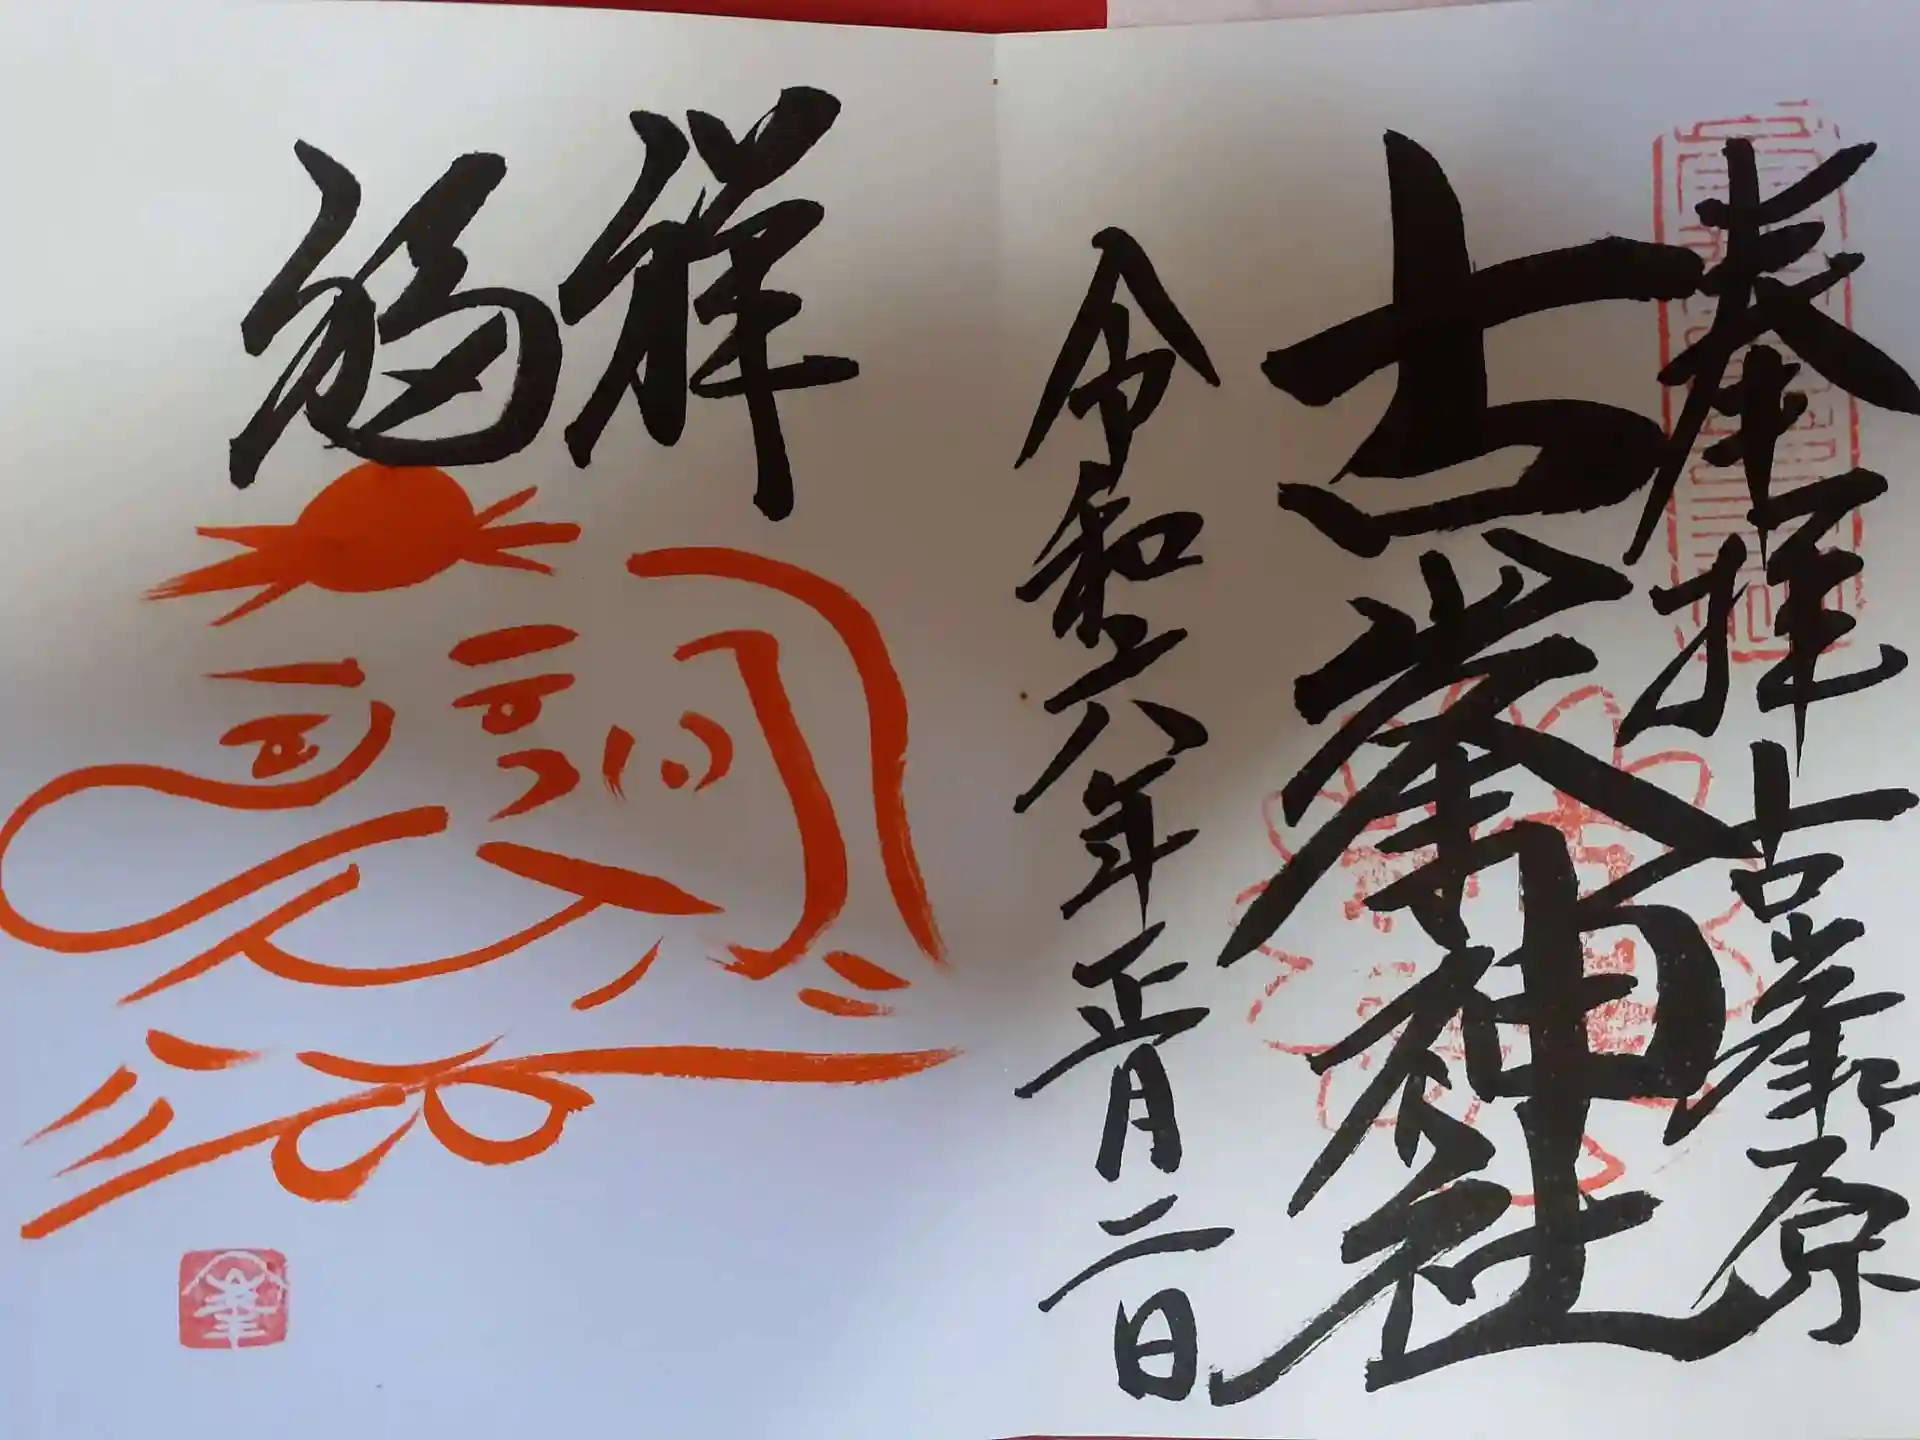 奉拝 古峯ヶ原
古峯神社
令和六年正月二日
祥
福